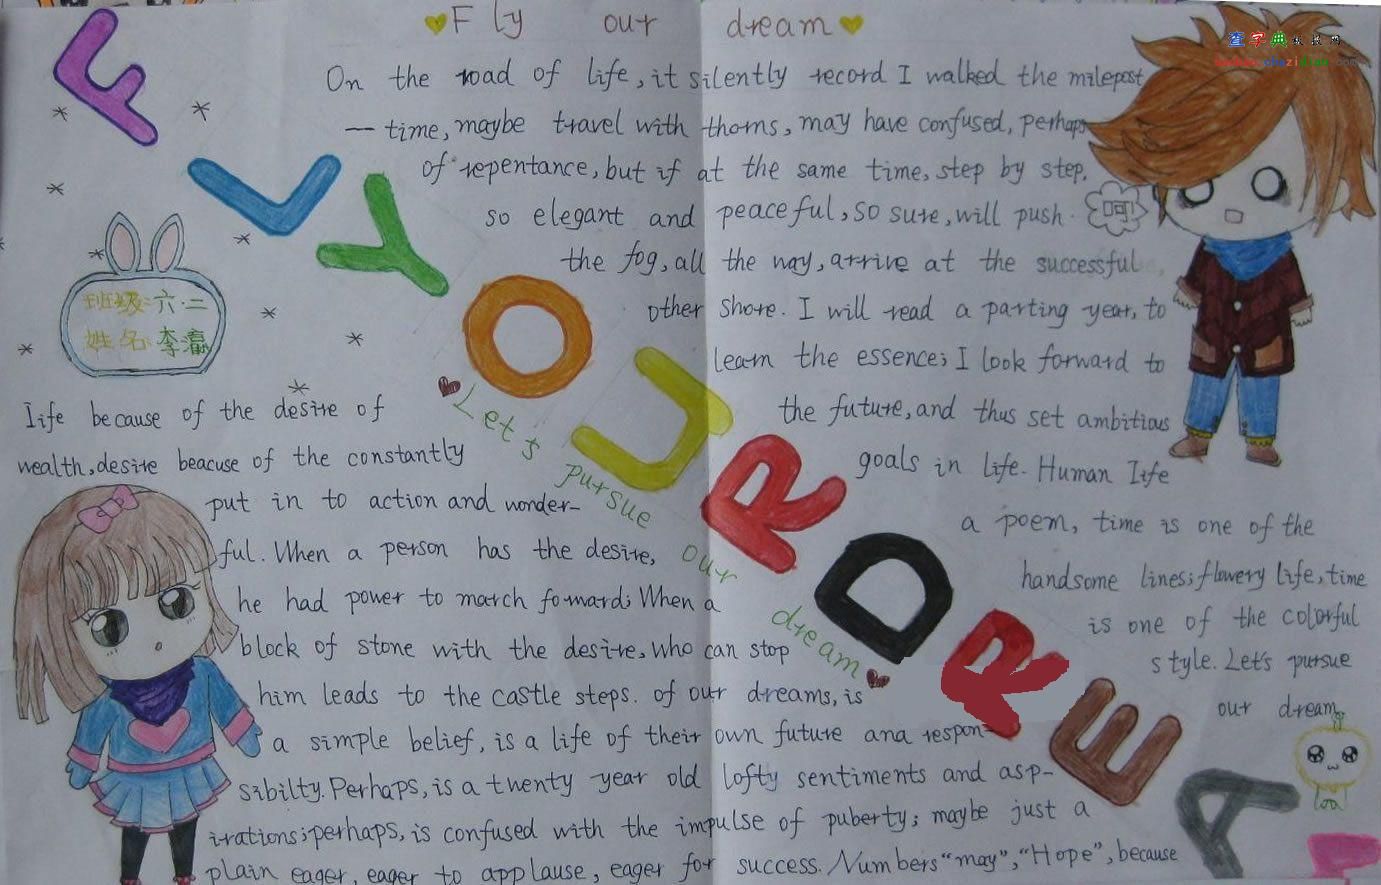 Fly our dream
查字典
On the road of life, it silently record I walked the milepost
— time, maybe travel with thorns, may have confused, perhaps
of repentance, but if at the same time, step by step,
so elegant and peaceful, so sure, will push
the fog, all the way, arrive at the successful
other shore. I will read a parting year, to
learn the essence; I look forward to
the future, and thus set ambitious
goals in life. Human Iife
a poem, time is one of the
handsome lines; flowery life, time
is one of the colorful
style. Let's pursue
our dream
FLY OUR DREA
Let's pursue our dream
班级: 六·二
姓名: 李瀛
Iife because of the desire of
wealth, desire beacuse of the constantly
put in to action and wonder-
ful. When a person has the desire,
he had power to march forward; When a
block of stone with the desire, who can stop
him leads to the castle steps. of our dreams, is
a simple belief, is a life of their own future and respon-
sibilty. Perhaps, is a twenty year old lofty sentiments and asp-
irations; perhaps, is confused with the impulse of puberty; maybe just a
plain eager, eager to applause, eager for success. Numbers "may", "Hope", because